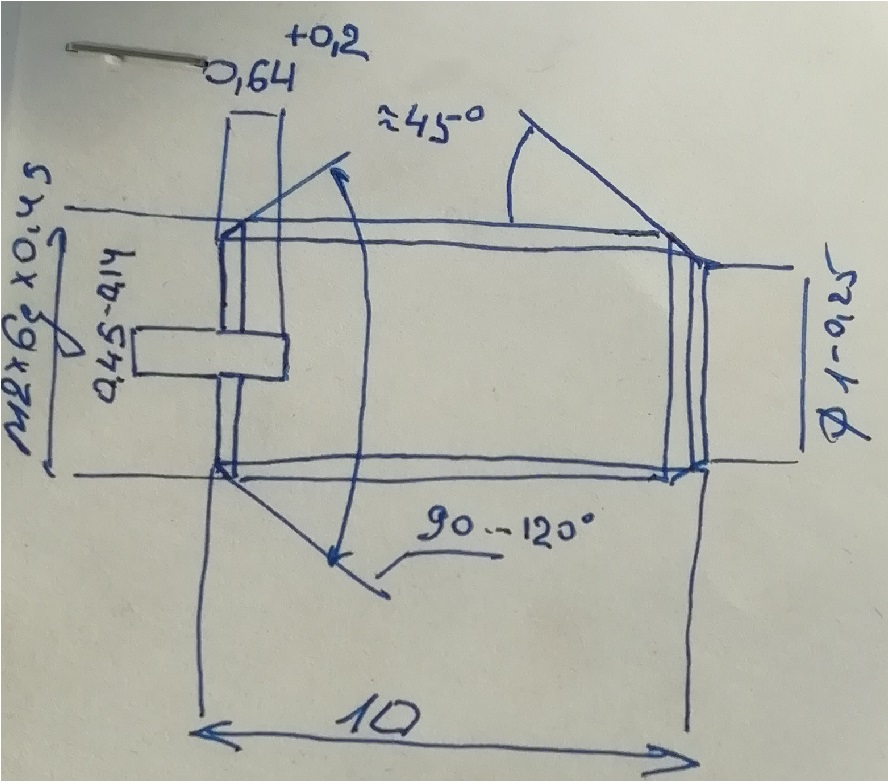 +0,2
0,64
≈45°
M2×6g×0,45
0,45-0,14
Ø1-0,25
90...120°
10